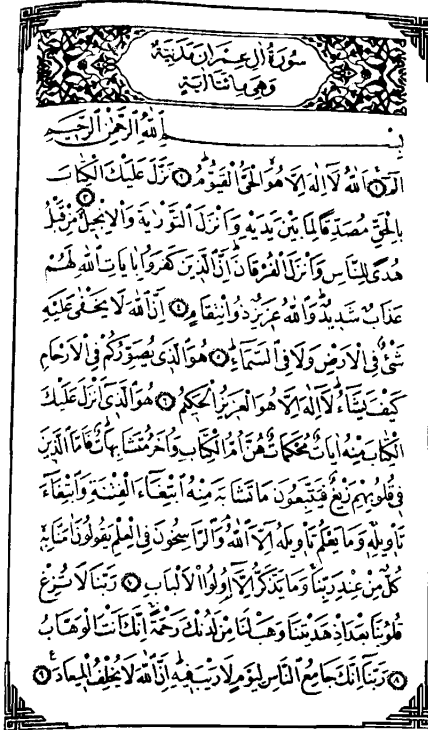 سُورَةُ اٰلِ عِمْرٰانَ مَدَنِيَّةٌ
وَهِيَ مِائَتَا اٰيَةٍ
بِسْمِ اللّٰهِ الرَّحْمٰنِ الرَّحٖيمِ
الٓمٓ ﴿١﴾ اَللّٰهُ لَٓا اِلٰهَ اِلَّا هُوَۙ الْحَيُّ الْقَيُّومُۜ ﴿٢﴾ نَزَّلَ عَلَيْكَ الْكِتَابَ
بِالْحَقِّ مُصَدِّقًا لِمَا بَيْنَ يَدَيْهِ وَاَنْزَلَ التَّوْرٰيةَ وَالْاِنْجٖيلَۙ ﴿٣﴾ مِنْ قَبْلُ
هُدًى لِلنَّاسِ وَاَنْزَلَ الْفُرْقَانَۜ اِنَّ الَّذٖينَ كَفَرُوا بِاٰيَاتِ اللّٰهِ لَهُمْ
عَذَابٌ شَدٖيدٌۜ وَاللّٰهُ عَزٖيزٌ ذُو انْتِقَامٍ ﴿٤﴾ اِنَّ اللّٰهَ لَا يَخْفٰى عَلَيْهِ
شَيْءٌ فِي الْاَرْضِ وَلَا فِي السَّمَٓاءِۜ ﴿٥﴾ هُوَ الَّذٖي يُصَوِّرُكُمْ فِي الْاَرْحَامِ
كَيْفَ يَشَٓاءُۜ لَٓا اِلٰهَ اِلَّا هُوَ الْعَزٖيزُ الْحَكٖيمُ ﴿٦﴾ هُوَ الَّذٖٓي اَنْزَلَ عَلَيْكَ
الْكِتَابَ مِنْهُ اٰيَاتٌ مُحْكَمَاتٌ هُنَّ اُمُّ الْكِتَابِ وَاُخَرُ مُتَشَابِهَاتٌۜ فَاَمَّا الَّذٖينَ
فٖي قُلُوبِهِمْ زَيْغٌ فَيَتَّبِعُونَ مَا تَشَابَهَ مِنْهُ ابْتِغَٓاءَ الْفِتْنَةِ وَابْتِغَٓاءَ
تَأْوٖيلِهٖۚ وَمَا يَعْلَمُ تَأْوٖيلَهُٓ اِلَّا اللّٰهُۘ وَالرَّاسِخُونَ فِي الْعِلْمِ يَقُولُونَ اٰمَنَّا بِهٖۙ
كُلٌّ مِنْ عِنْدِ رَبِّنَاۚ وَمَا يَذَّكَّرُ اِلَّٓا اُولُوا الْاَلْبَابِ ﴿٧﴾ رَبَّنَا لَا تُزِغْ
قُلُوبَنَا بَعْدَ اِذْ هَدَيْتَنَا وَهَبْ لَنَا مِنْ لَدُنْكَ رَحْمَةًۚ اِنَّكَ اَنْتَ الْوَهَّابُ
﴿٨﴾ رَبَّنَٓا اِنَّكَ جَامِعُ النَّاسِ لِيَوْمٍ لَا رَيْبَ فٖيهِۜ اِنَّ اللّٰهَ لَا يُخْلِفُ الْمٖيعَادَ ﴿٩﴾